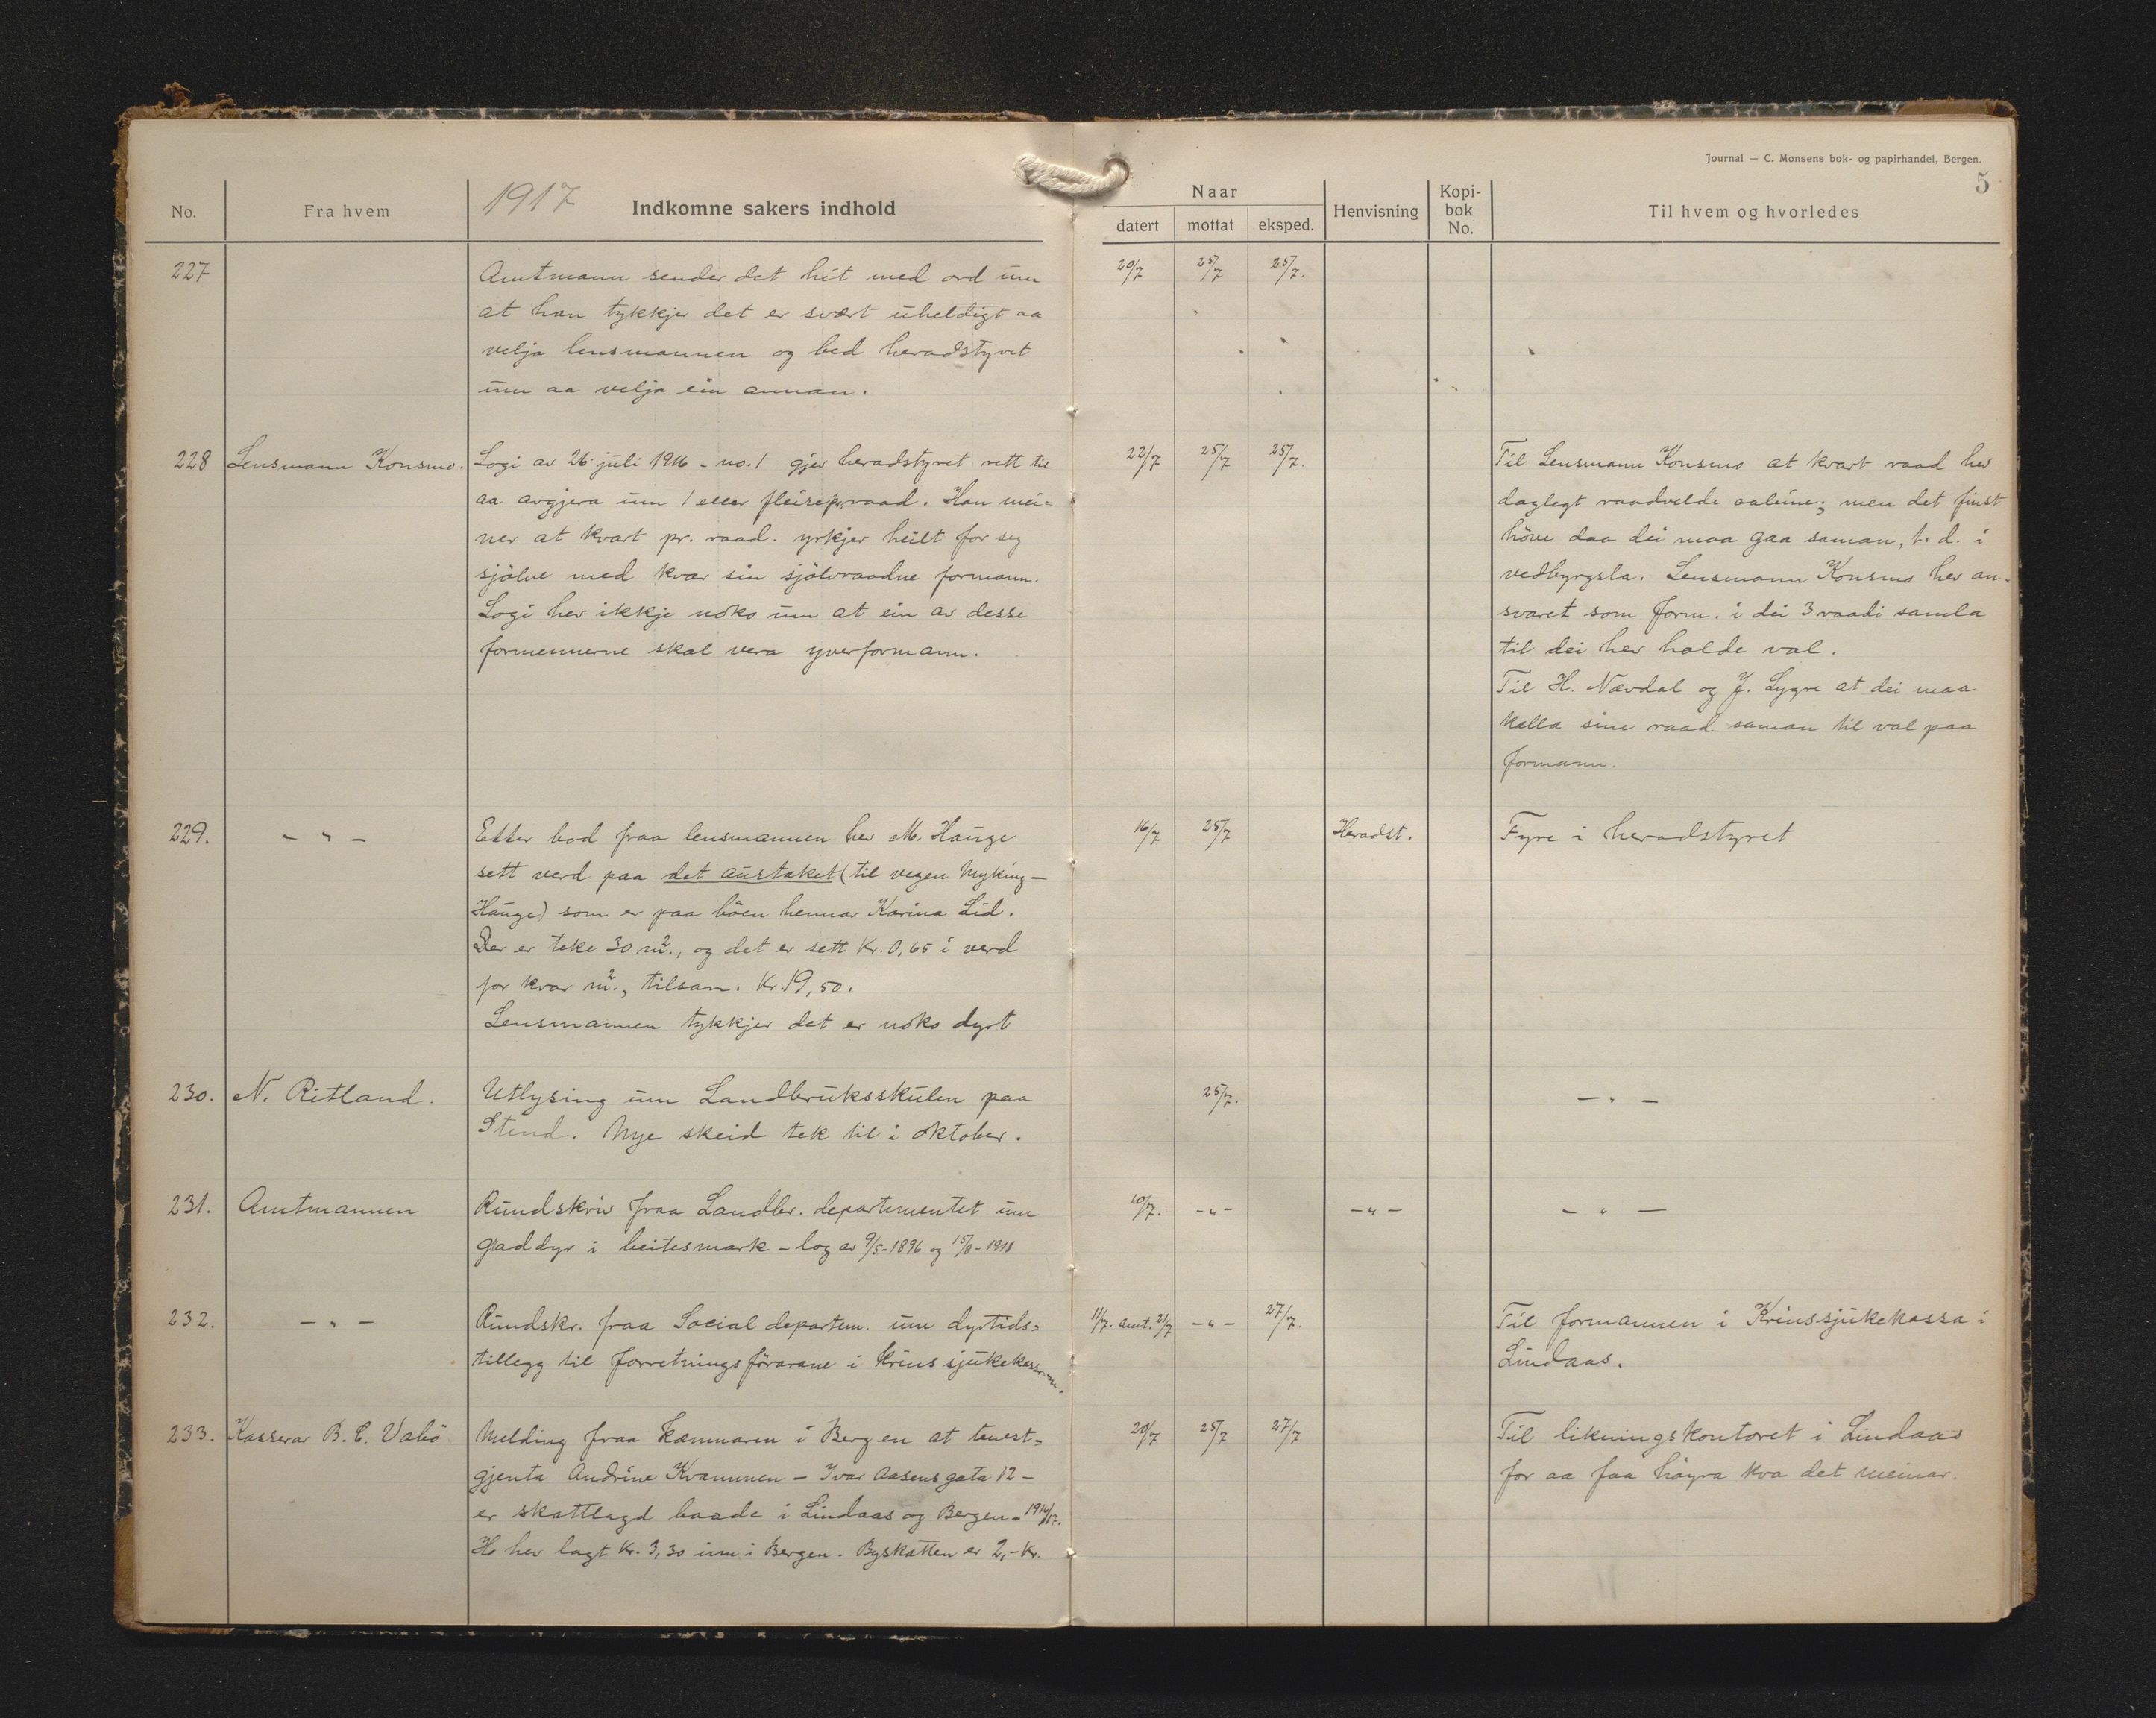 Journal — C. Monsens bok- og papirhandel, Bergen.
5
No. Fra hvem 1917 Indkomne sakers indhold Naar datert mottat eksped. Henvisning Kopi-bok No. Til hvem og hvorledes
227 Amtmann sender det hit med ord um 20/7 25/7 25/7.
at han tykkje det er svært uheldigt aa
velja lensmannen og bed heradstyret
um aa velja ein annan.
228 Lensmann Konsmo. Logi av 26. juli 1916 - no. 1 gjev heradstyret rett til 22/7 25/7 25/7. Til Lensmann Konsmo at kvart raad hev
aa avgjera um 1 eller fleire pr. raad. Han mei= daglegt raadvelde aaleine; men det finst
ner at kvart pr. raad. yrkjer heilt for seg höve daa dei maa gaa saman, t. d. i
sjölve med kvar sin sjölvraadne formann. vedbyrgsla. Lensmann Konsmo hev an-
Logi hev ikkje noko um at ein av desse svaret som form. i dei 3 raadi samla
formennerne skal vera yverformann. til dei hev halde val.
Til H. Nævdal og J. Lygre at dei maa
kalla sine raad saman til val paa
formann.
229. - " - Etter bod fraa lensmannen hev M. Hauge 16/7 25/7 Heradst. Fyre i heradstyret
sett verd paa det austaket (til vegen Myking -
Hauge) som er paa böen hennar Karina Lid.
Der er teke 30 m²., og det er sett Kr. 0,65 i verd
for kvar m²., tilsam. Kr. 19,50.
Lensmannen tykkjer det er noko dyrt
230. N. Ritland. Utlysing um Landbruksskulen paa 25/7. - " -
Stend. Nye skeid tek til i oktober.
231. Amtmannen Rundskriv fraa Landbr. departementet um 10/7. - " - - " - - " -
graddyr i beitesmark - log av 9/5-1896 og 15/8-1911
232. - " - Rundskr. fraa Social departem. um dyrtids= 11/7. amt. 21/7 - " - 27/7. Til formannen i Krinssjukekassa i
tillegg til forretningsförarane i krinssjukekassorne. Lindaas.
233. Kasserar B. E. Vabö Melding fraa Kæmnaren i Bergen at tenest= 20/7 25/7 27/7 Til likningskontoret i Lindaas
gjenta Andrine Kvammen - Ivar Aasens gata 12 - for aa faa höyra kva det meinar.
er skattlagd baade i Lindaas og Bergen - 1916/17.
Ho hev lagt Kr. 3,30 inn i Bergen. Byskatten er 2,- Kr.